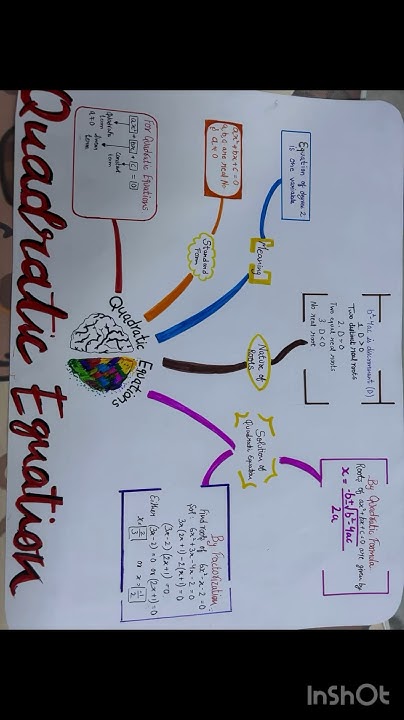 Quadratic Equation
Quadratic
Equations
Meaning
Equation of degree 2
is one variable
Standard
Form
ax²+bx+c=0
a,b,c are real No.
& a≠0
For Quadratic Equations
ax² + bx + c = 0
Quadratic
term
linear
term
constant
term
a≠0
Nature of
Roots
b²-4ac is discriminant (D)
1. D>0
Two distinct real roots
2. D=0
Two equal real roots
3. D<0
No real root
Solution of
Quadratic Equation
By Quadratic Formula
Roots of ax²+bx+c=0 are given by
x = -b±√b²-4ac
2a
By Factorization
Find roots of 6x²-x-2=0
Sol. 6x²+3x-4x-2=0
3x(2x+1)-2(x+1)=0
(3x-2)(2x+1)=0
Either
(3x-2)=0 or (2x+1)=0
x=2/3 or x=-1/2
InShOt